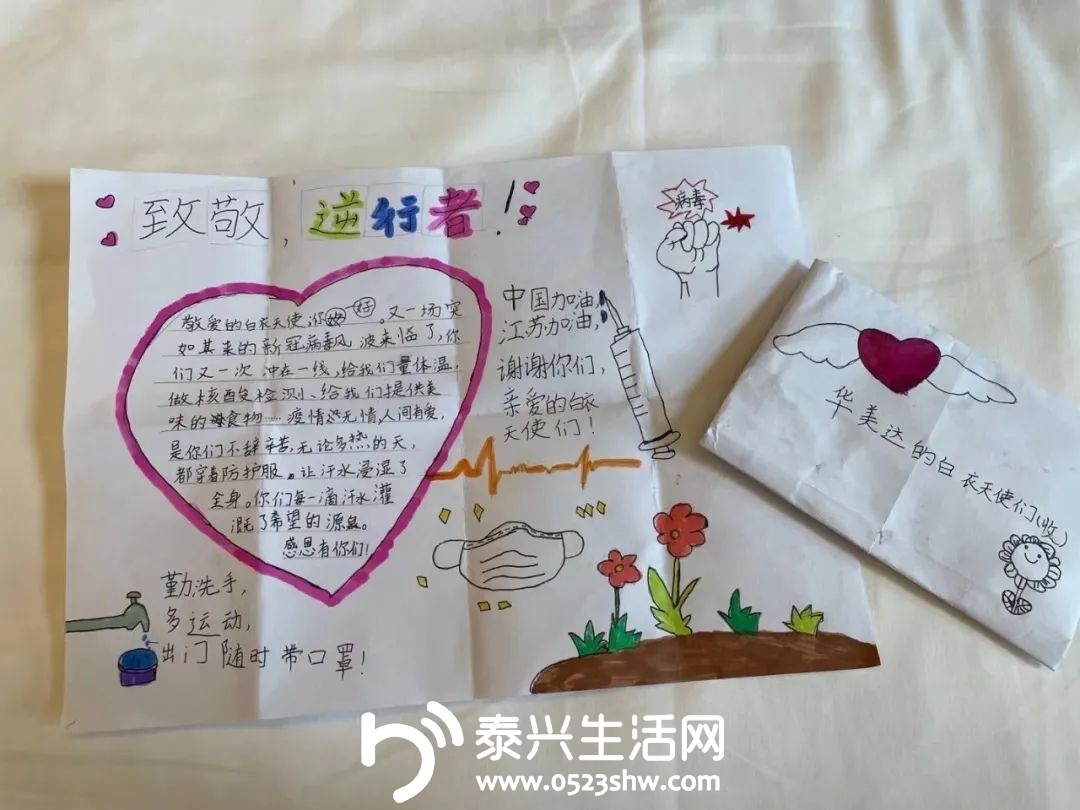 致敬,逆行者!
病毒
敬爱的白衣天使你好。又一场突
如其来的新冠病毒风波来临了,你
们又一次冲在一线,给我们量体温,
做核酸检测、给我们提供美
味的食物……疫情无情,人间有爱,
是你们不辞辛苦,无论多热的天,
都穿着防护服。让汗水浸湿了
全身。你们每一滴汗水灌
溉了希望的源泉。
感恩有你们!
中国加油,
江苏加油,
谢谢你们,
亲爱的白衣
天使们!
勤洗手,
多运动,
出门随时带口罩!
华美达的白衣天使们(收)
泰兴生活网
www.0523shw.com